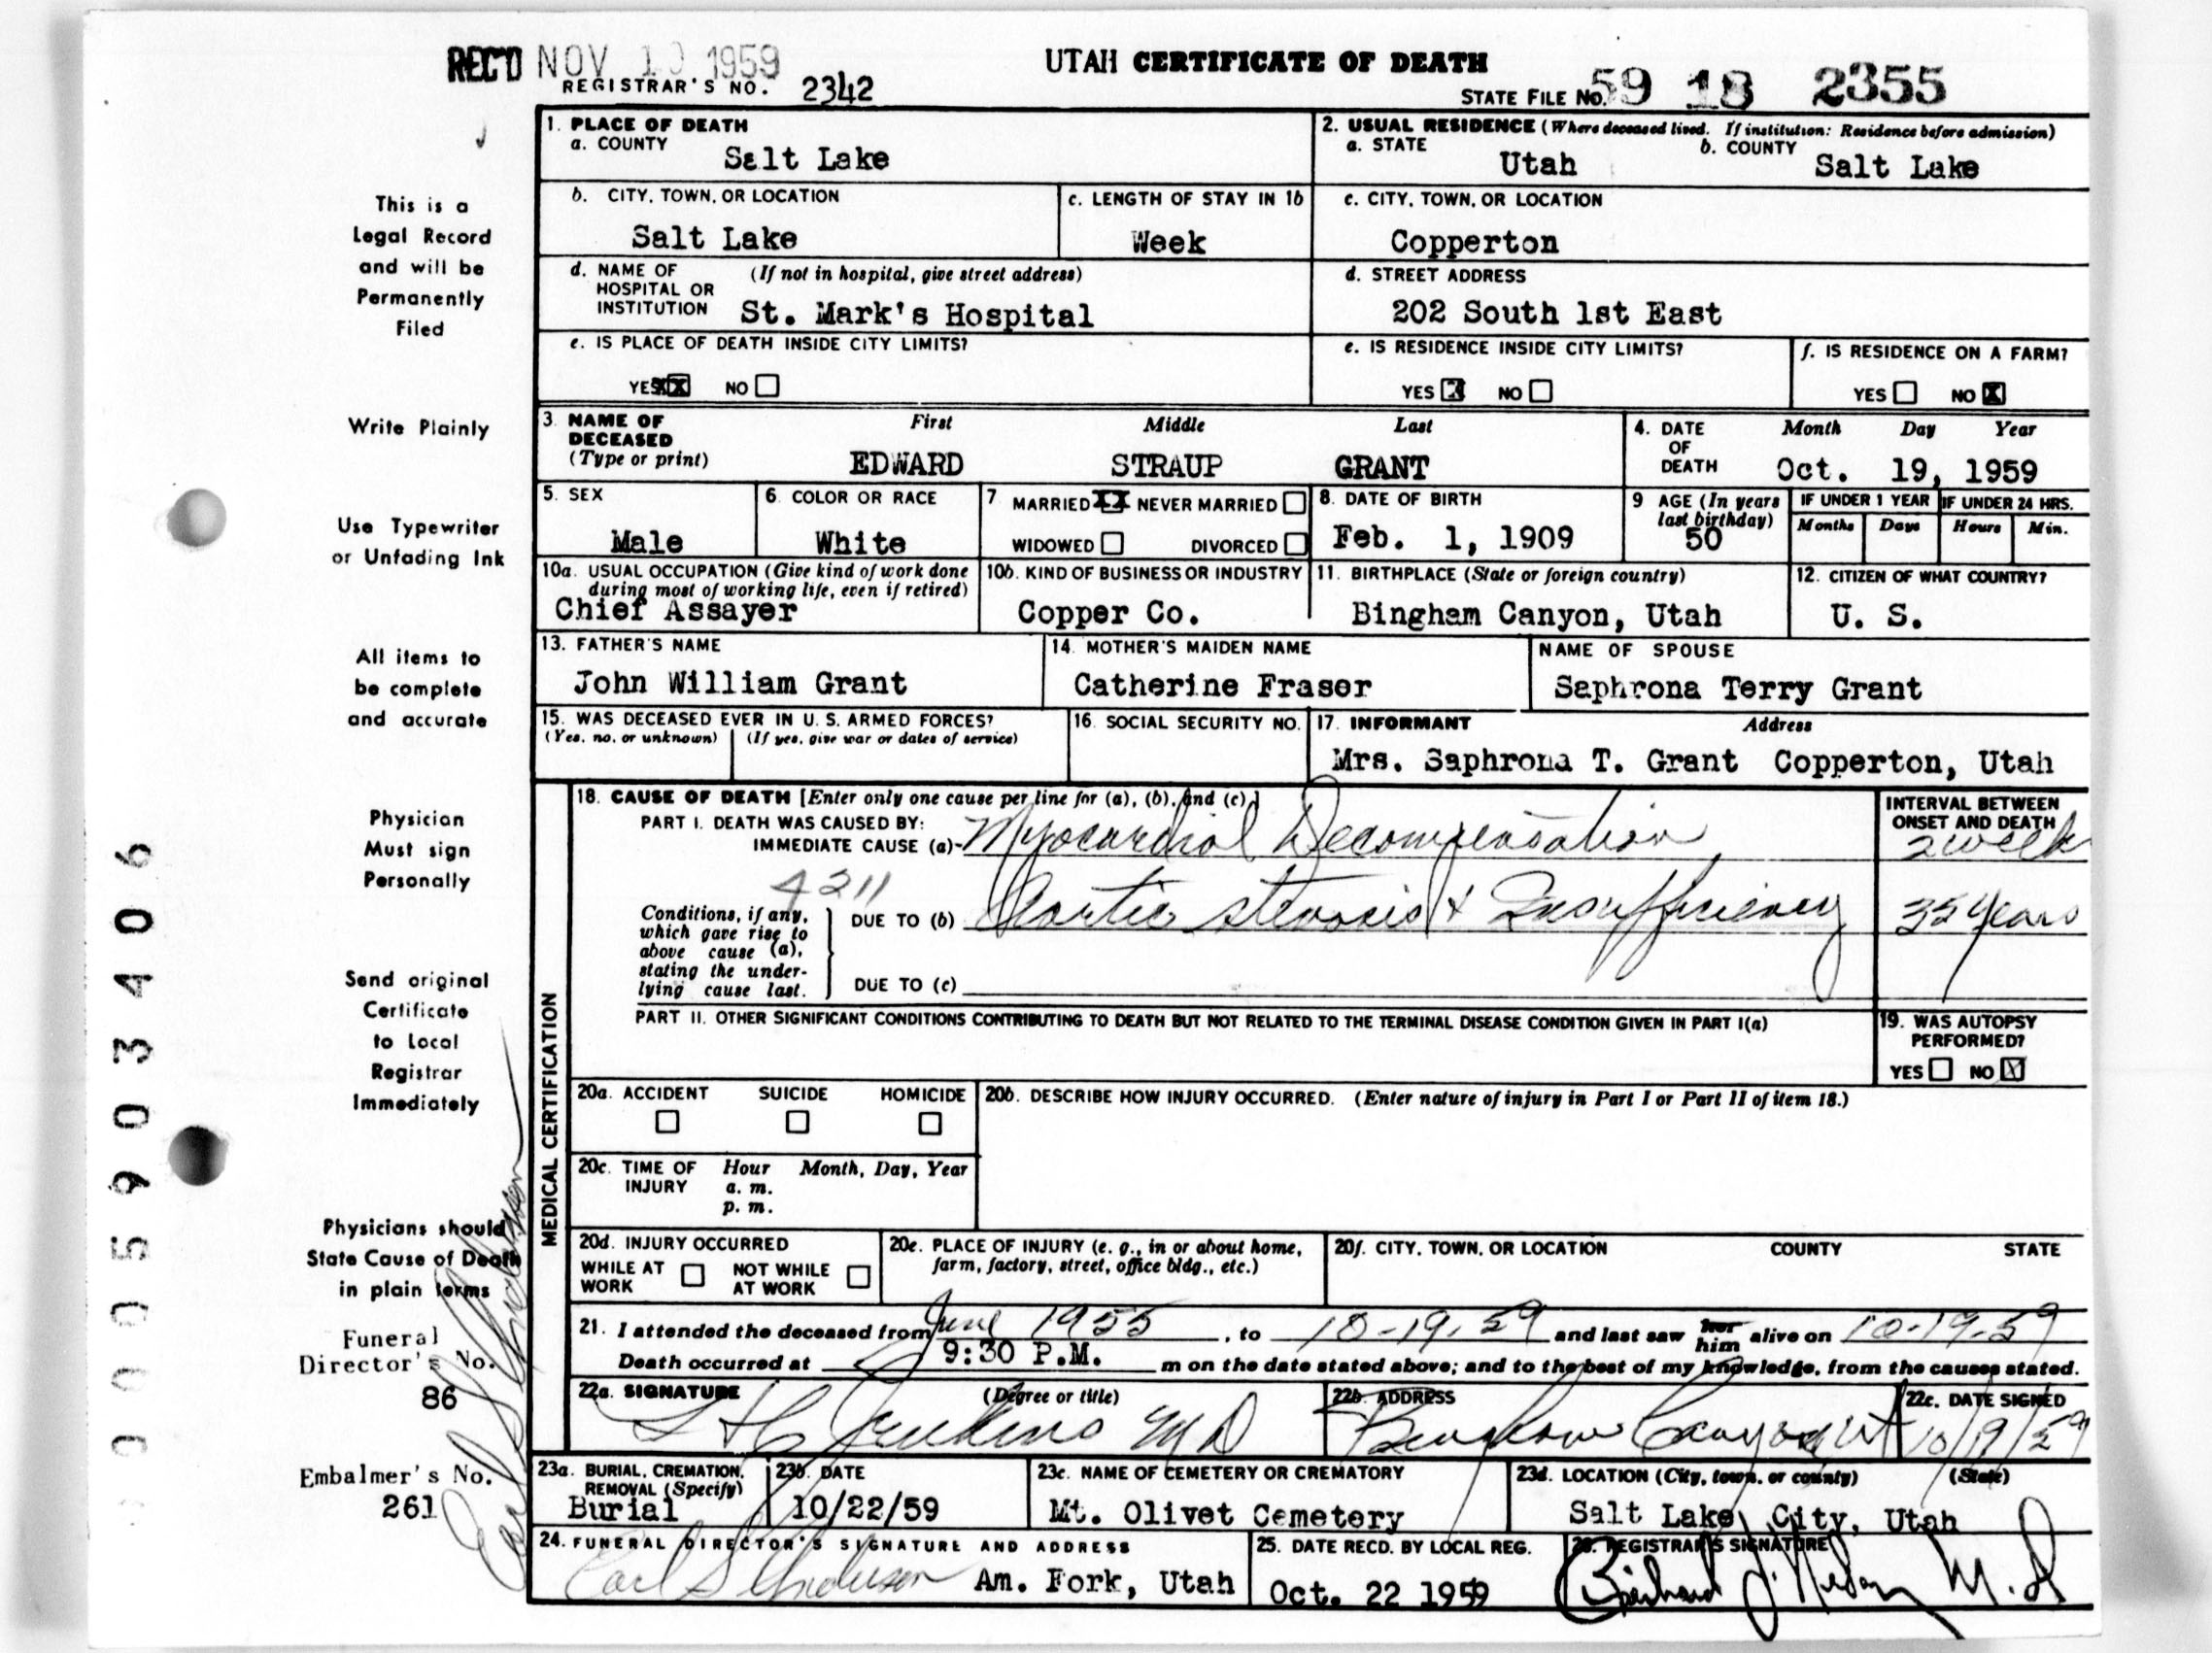 REC'D NOV 1959
REGISTRAR'S NO. 2342
UTAH CERTIFICATE OF DEATH
STATE FILE No. 59 18 2355
This is a
Legal Record
and will be
Permanently
Filed
Write Plainly
Use Typewriter
or Unfading Ink
All items to
be complete
and accurate
Physician
Must sign
Personally
Send original
Certificate
to Local
Registrar
Immediately
Physicians should
State Cause of Death
in plain terms
Funeral
Director's No.
86
Embalmer's No.
261
1. PLACE OF DEATH
a. COUNTY
Salt Lake
2. USUAL RESIDENCE (Where deceased lived. If institution: Residence before admission)
a. STATE Utah b. COUNTY Salt Lake
b. CITY, TOWN, OR LOCATION
Salt Lake
c. LENGTH OF STAY IN 1b
Week
c. CITY, TOWN, OR LOCATION
Copperton
d. NAME OF HOSPITAL OR INSTITUTION (If not in hospital, give street address)
St. Mark's Hospital
d. STREET ADDRESS
202 South 1st East
e. IS PLACE OF DEATH INSIDE CITY LIMITS?
YES XX NO
e. IS RESIDENCE INSIDE CITY LIMITS?
YES X NO
f. IS RESIDENCE ON A FARM?
YES NO X
3. NAME OF DECEASED (Type or print)
First Middle Last
EDWARD STRAUP GRANT
4. DATE OF DEATH Month Day Year
Oct. 19, 1959
5. SEX
Male
6. COLOR OR RACE
White
7 MARRIED XX NEVER MARRIED
WIDOWED DIVORCED
8. DATE OF BIRTH
Feb. 1, 1909
9 AGE (In years last birthday)
50
IF UNDER 1 YEAR IF UNDER 24 HRS.
Months Days Hours Min.
10a. USUAL OCCUPATION (Give kind of work done during most of working life, even if retired)
Chief Assayer
10b. KIND OF BUSINESS OR INDUSTRY
Copper Co.
11. BIRTHPLACE (State or foreign country)
Bingham Canyon, Utah
12. CITIZEN OF WHAT COUNTRY?
U. S.
13. FATHER'S NAME
John William Grant
14. MOTHER'S MAIDEN NAME
Catherine Fraser
NAME OF SPOUSE
Saphrona Terry Grant
15. WAS DECEASED EVER IN U. S. ARMED FORCES?
(Yes, no, or unknown) (If yes, give war or dates of service)
16. SOCIAL SECURITY NO.
17. INFORMANT Address
Mrs. Saphrona T. Grant Copperton, Utah
MEDICAL CERTIFICATION
18. CAUSE OF DEATH [Enter only one cause per line for (a), (b), and (c).]
PART I. DEATH WAS CAUSED BY:
IMMEDIATE CAUSE (a) Myocardial Decompensation
INTERVAL BETWEEN ONSET AND DEATH
2 week
4211
Conditions, if any, which gave rise to above cause (a), stating the underlying cause last.
DUE TO (b) Aortic stenosis & Insufficiency
35 years
DUE TO (c)
PART II. OTHER SIGNIFICANT CONDITIONS CONTRIBUTING TO DEATH BUT NOT RELATED TO THE TERMINAL DISEASE CONDITION GIVEN IN PART I(a)
19. WAS AUTOPSY PERFORMED?
YES NO X
20a. ACCIDENT SUICIDE HOMICIDE
20b. DESCRIBE HOW INJURY OCCURRED. (Enter nature of injury in Part I or Part II of item 18.)
20c. TIME OF INJURY Hour Month, Day, Year
a. m.
p. m.
20d. INJURY OCCURRED
WHILE AT WORK NOT WHILE AT WORK
20e. PLACE OF INJURY (e. g., in or about home, farm, factory, street, office bldg., etc.)
20f. CITY, TOWN, OR LOCATION COUNTY STATE
21. I attended the deceased from June 1955, to 10-19-59 and last saw her him alive on 10-19-59
Death occurred at 9:30 P.M. m on the date stated above; and to the best of my knowledge, from the causes stated.
22a. SIGNATURE (Degree or title)
Jenkins MD
22b. ADDRESS
Bingham Canyon Ut
22c. DATE SIGNED
10/19/59
23a. BURIAL, CREMATION, REMOVAL (Specify)
Burial
23b. DATE
10/22/59
23c. NAME OF CEMETERY OR CREMATORY
Mt. Olivet Cemetery
23d. LOCATION (City, town, or county) (State)
Salt Lake City, Utah
24. FUNERAL DIRECTOR'S SIGNATURE AND ADDRESS
Earl S Anderson Am. Fork, Utah
25. DATE RECD. BY LOCAL REG.
Oct. 22 1959
26. REGISTRAR'S SIGNATURE
M.D